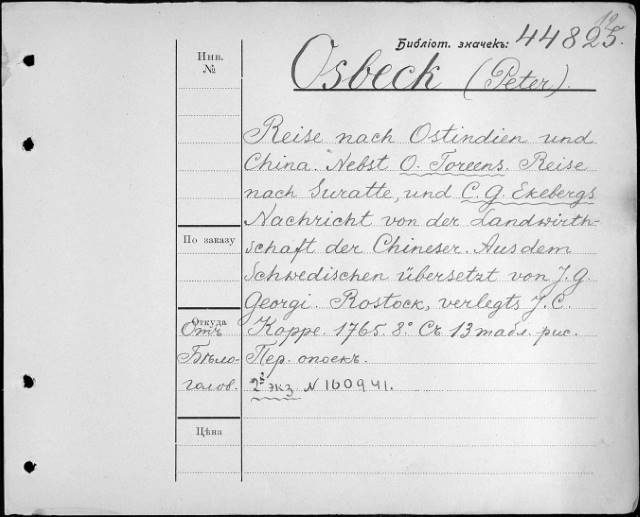 Библіот. значекъ: 44825.
12
Инв.
№
Osbeck (Peter).
Reise nach Ostindien und
China. Nebst O. Toreens. Reise
nach Suratte, und C. G. Ekebergs
Nachricht von der Landwirth-
schaft der Chineser. Aus dem
По заказу
Schwedischen übersetzt von J. G.
Georgi. Rostock, verlegts J. C.
Откуда
Отъ Koppe. 1765. 8° Съ 13 табл. рис.
Бѣло- Пер. опоек.
голов. 2й экз N 160941.
Цѣна